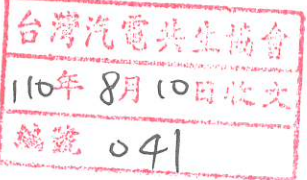 台灣汽電共生協會
110年 8月 10日收文
編號 041